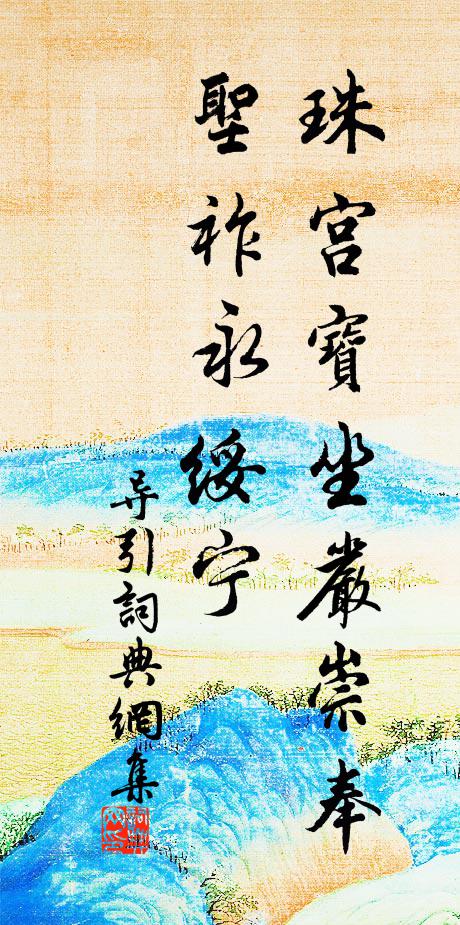 珠宫寶坐嚴崇奉
聖祚永綏宁
导引詞典網集